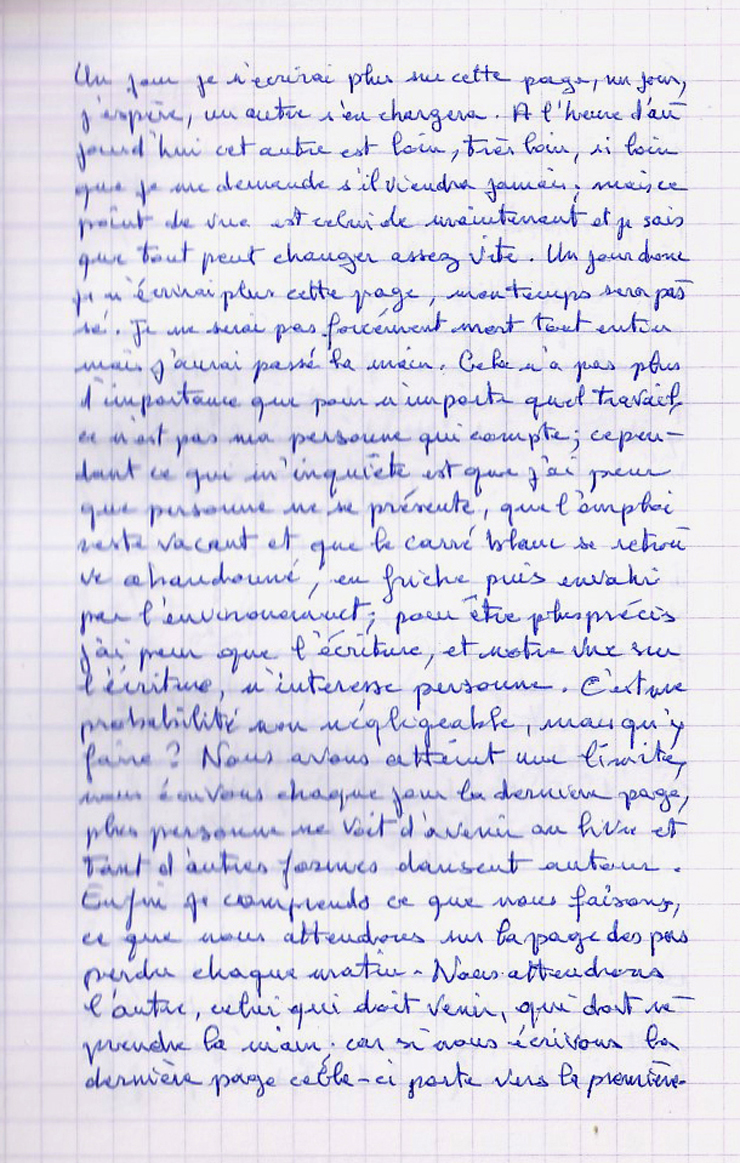 Un jour je n'écrirai plus sur cette page, un jour,
j'espère, un autre s'en chargera. A l'heure d'au
jourd'hui cet autre est loin, très loin, si loin
que je me demande s'il viendra jamais; mais ce
point de vue est celui de maintenant et je sais
que tout peut changer assez vite. Un jour donc
je n'écrirai plus cette page, mon temps sera pas
sé. Je ne serai pas forcément mort tout entier
mais j'aurai passé la main. Cela n'a pas plus
d'importance que pour n'importe quel travail,
ce n'est pas ma personne qui compte; cepen-
dant ce qui m'inquiète est que j'ai peur
que personne ne se présente, que l'emploi
reste vacant et que le carré blanc se retrou
ve abandonné, en friche puis envahi
par l'environnement; pour être plus précis
j'ai peur que l'écriture, et notre vue sur
l'écriture, n'interesse personne. C'est une
probabilité non négligeable, mais qu'y
faire? Nous avons atteint une limite,
nous écrivons chaque jour la dernière page,
plus personne ne voit d'avenir au livre et
tant d'autres formes dansent autour.
Enfin je comprends ce que nous faisons,
ce que nous attendons sur la page des pas
perdu chaque matin. Nous attendons
l'autre, celui qui doit venir, qui doit re-
prendre la main; car si nous écrivons la
dernière page celle-ci porte vers la première